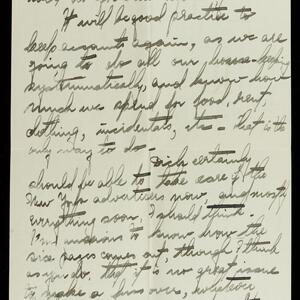 It will be good practice to
keep accounts again, as we are
going to do all our house-keeping
systematically, and know how
much we spend for food, rent,
clothing, incidentals, etc - that is the
only way to do -
Dick certainly
should be able to take care of the
New York advertisers now, and mostly
everything soon, I should think.
I'm anxious to know how the
size pages comes out, though I think
as you do, that it is no great issue
to make a fuss over, whatever